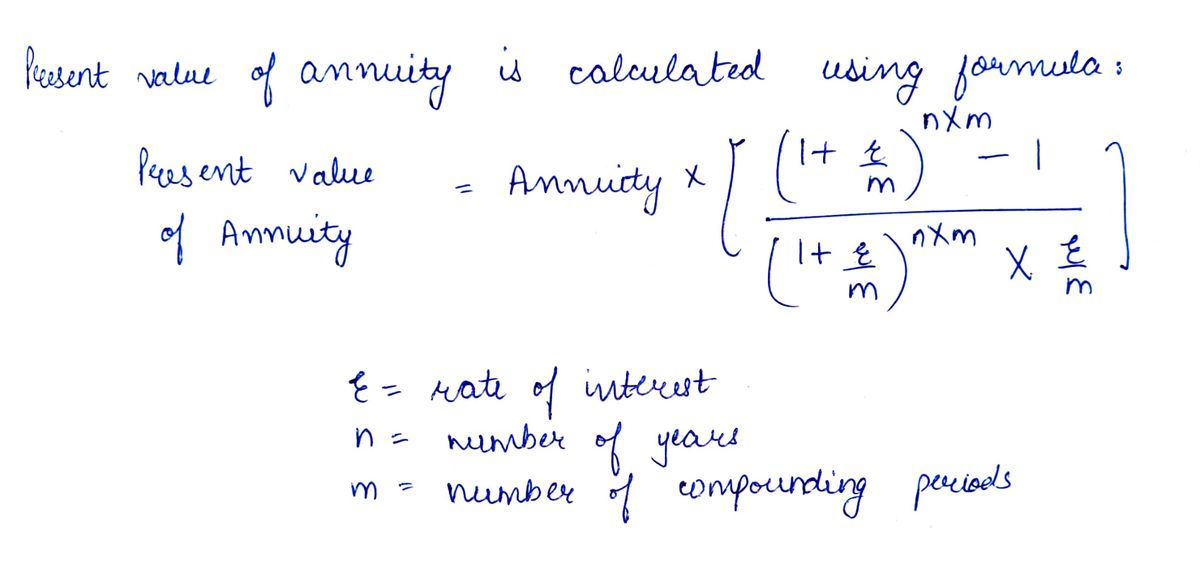 Present value of annuity is calculated using formula:
Present value of Annuity = Annuity × [ ( (1 + r/m)^(n×m) − 1 ) / ( (1 + r/m)^(n×m) × r/m ) ]
r = rate of interest
n = number of years
m = number of compounding periods